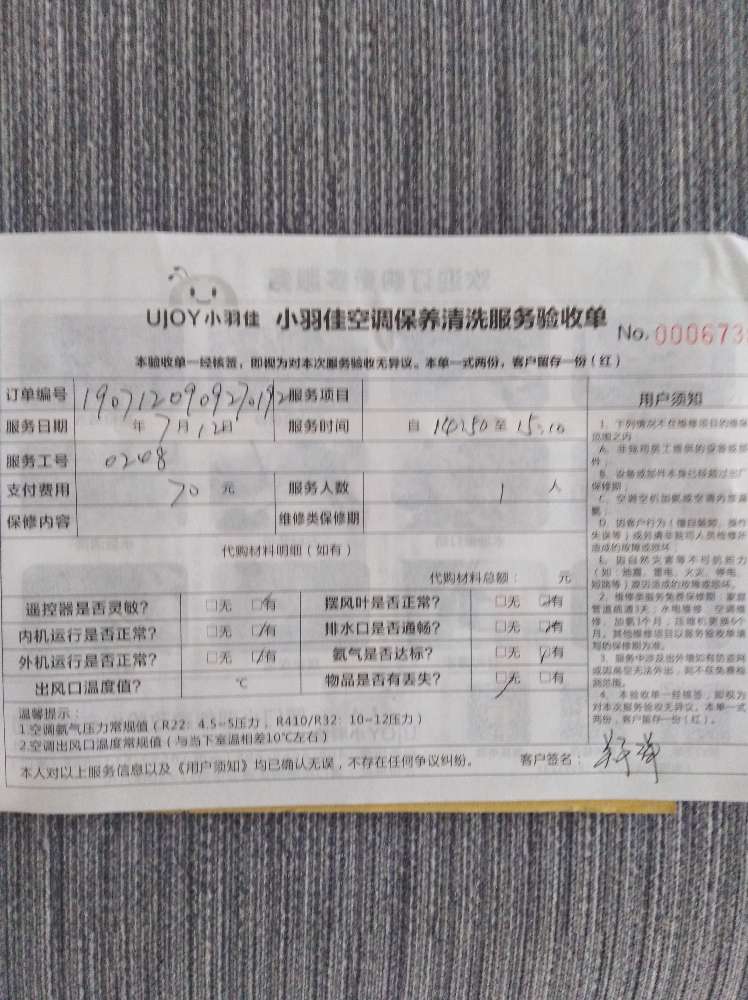 UJOY小羽佳 小羽佳空调保养清洗服务验收单 No. 000673
本验收单一经核签，即视为对本次服务验收无异议。本单一式两份，客户留存一份（红）
订单编号 190712090927019 服务项目
服务日期 年 7月12日 服务时间 自 14:50 至 15:10
服务工号 0208
支付费用 70 元 服务人数 1 人
保修内容 维修类保修期
代购材料明细（如有）
代购材料总额： 元
遥控器是否灵敏？ □无 □有 摆风叶是否正常？ □无 □有
内机运行是否正常？ □无 □有 排水口是否通畅？ □无 □有
外机运行是否正常？ □无 □有 氨气是否达标？ □无 □有
出风口温度值？ ℃ 物品是否有丢失？ □无 □有
温馨提示：
1.空调氨气压力常规值（R22：4.5-5压力；R410/R32：10-12压力）
2.空调出风口温度常规值（与当下室温相差10℃左右）
本人对以上服务信息以及《用户须知》均已确认无误，不存在任何争议纠纷。 客户签名：
用户须知
1、下列情况不在维修项目的维保
范围之内
B、设备或部件本身已经超过出厂
保修期；
D、因客户行为（擅自装卸、操作
失误等）或另请非我司人员检修所
造成的故障或损坏；
E、因自然灾害等不可抗拒力
（如：地震、雷电、火灾、停电、
短路等）原因造成的故障或损坏。
2、维修类服务免费保修期：家庭
管道疏通3天；水电维修、空调维
修、加氨1个月；压缩机更换6个
月。其他维修项目以服务验收单填
写的保修期为准。
4、本验收单一经核签，即视为
对本次服务验收无异议。本单一式
两份，客户留存一份（红）。